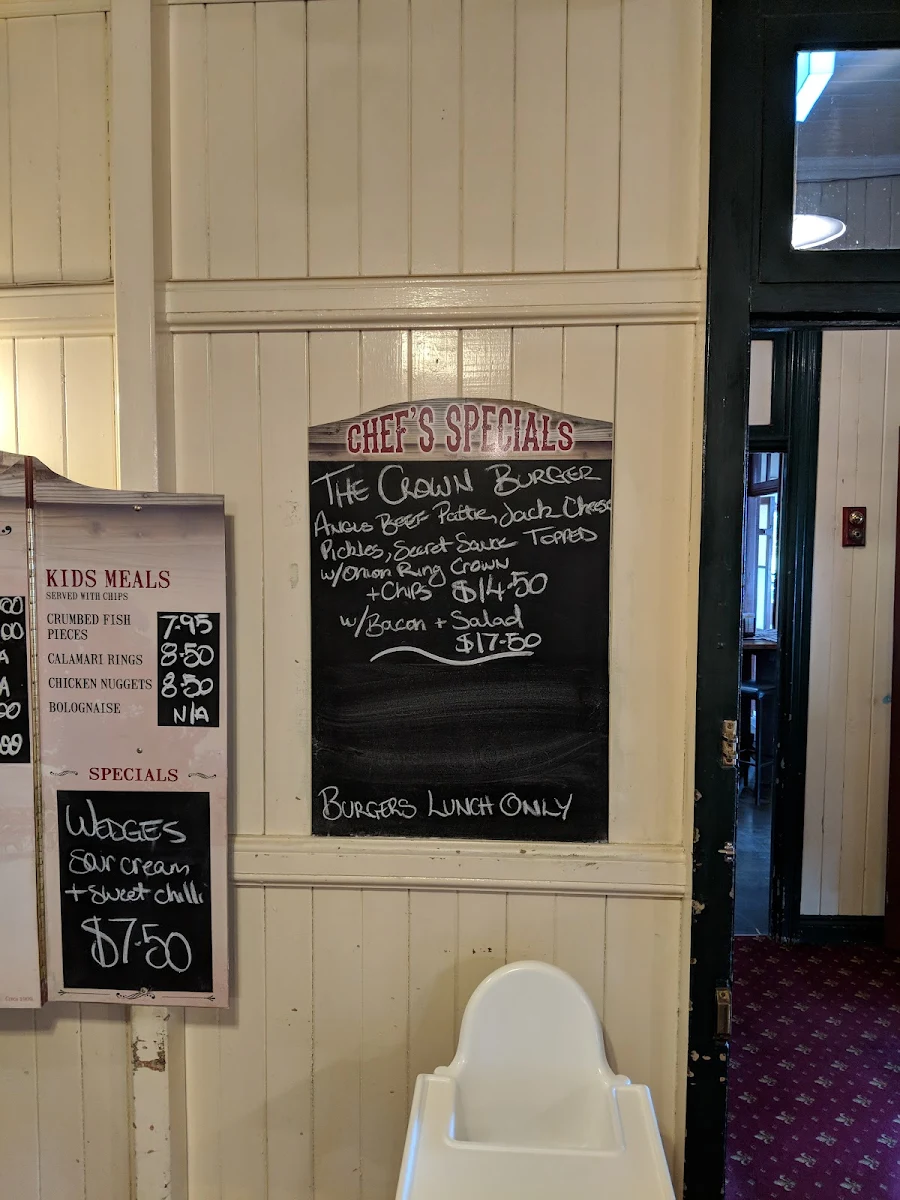 KIDS MEALS
SERVED WITH CHIPS
CRUMBED FISH PIECES 7.95
CALAMARI RINGS 8.50
CHICKEN NUGGETS 8.50
BOLOGNAISE N/A
SPECIALS
WEDGES
Sour cream
+ sweet chilli
$7.50
CHEF'S SPECIALS
THE CROWN BURGER
ANGUS BEEF Pattie, Jack Cheese
Pickles, Secret Sauce TOPPED
w/Onion Ring CROWN
+ CHIPS $14.50
w/Bacon + Salad
$17.50
BURGERS LUNCH ONLY